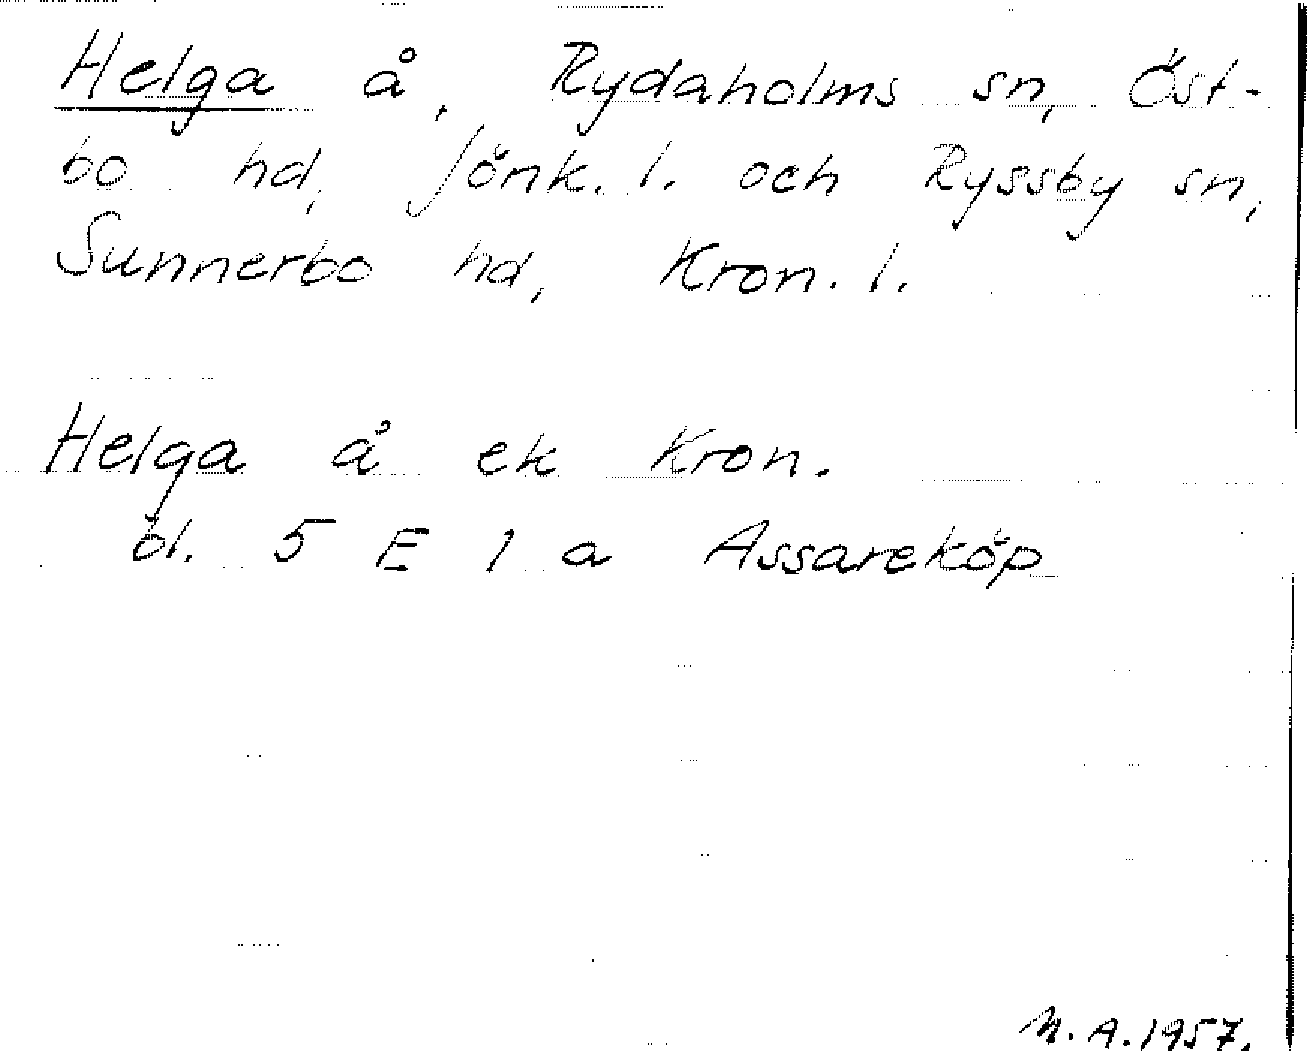 Helga å, Rydaholms sn, Öst-
bo hd, Jönk. l. och Ryssby sn,
Sunnerbo hd, Kron. l.
Helga å ek Kron.
bl. 5 E 1 a Assareköp
M.A.1957.